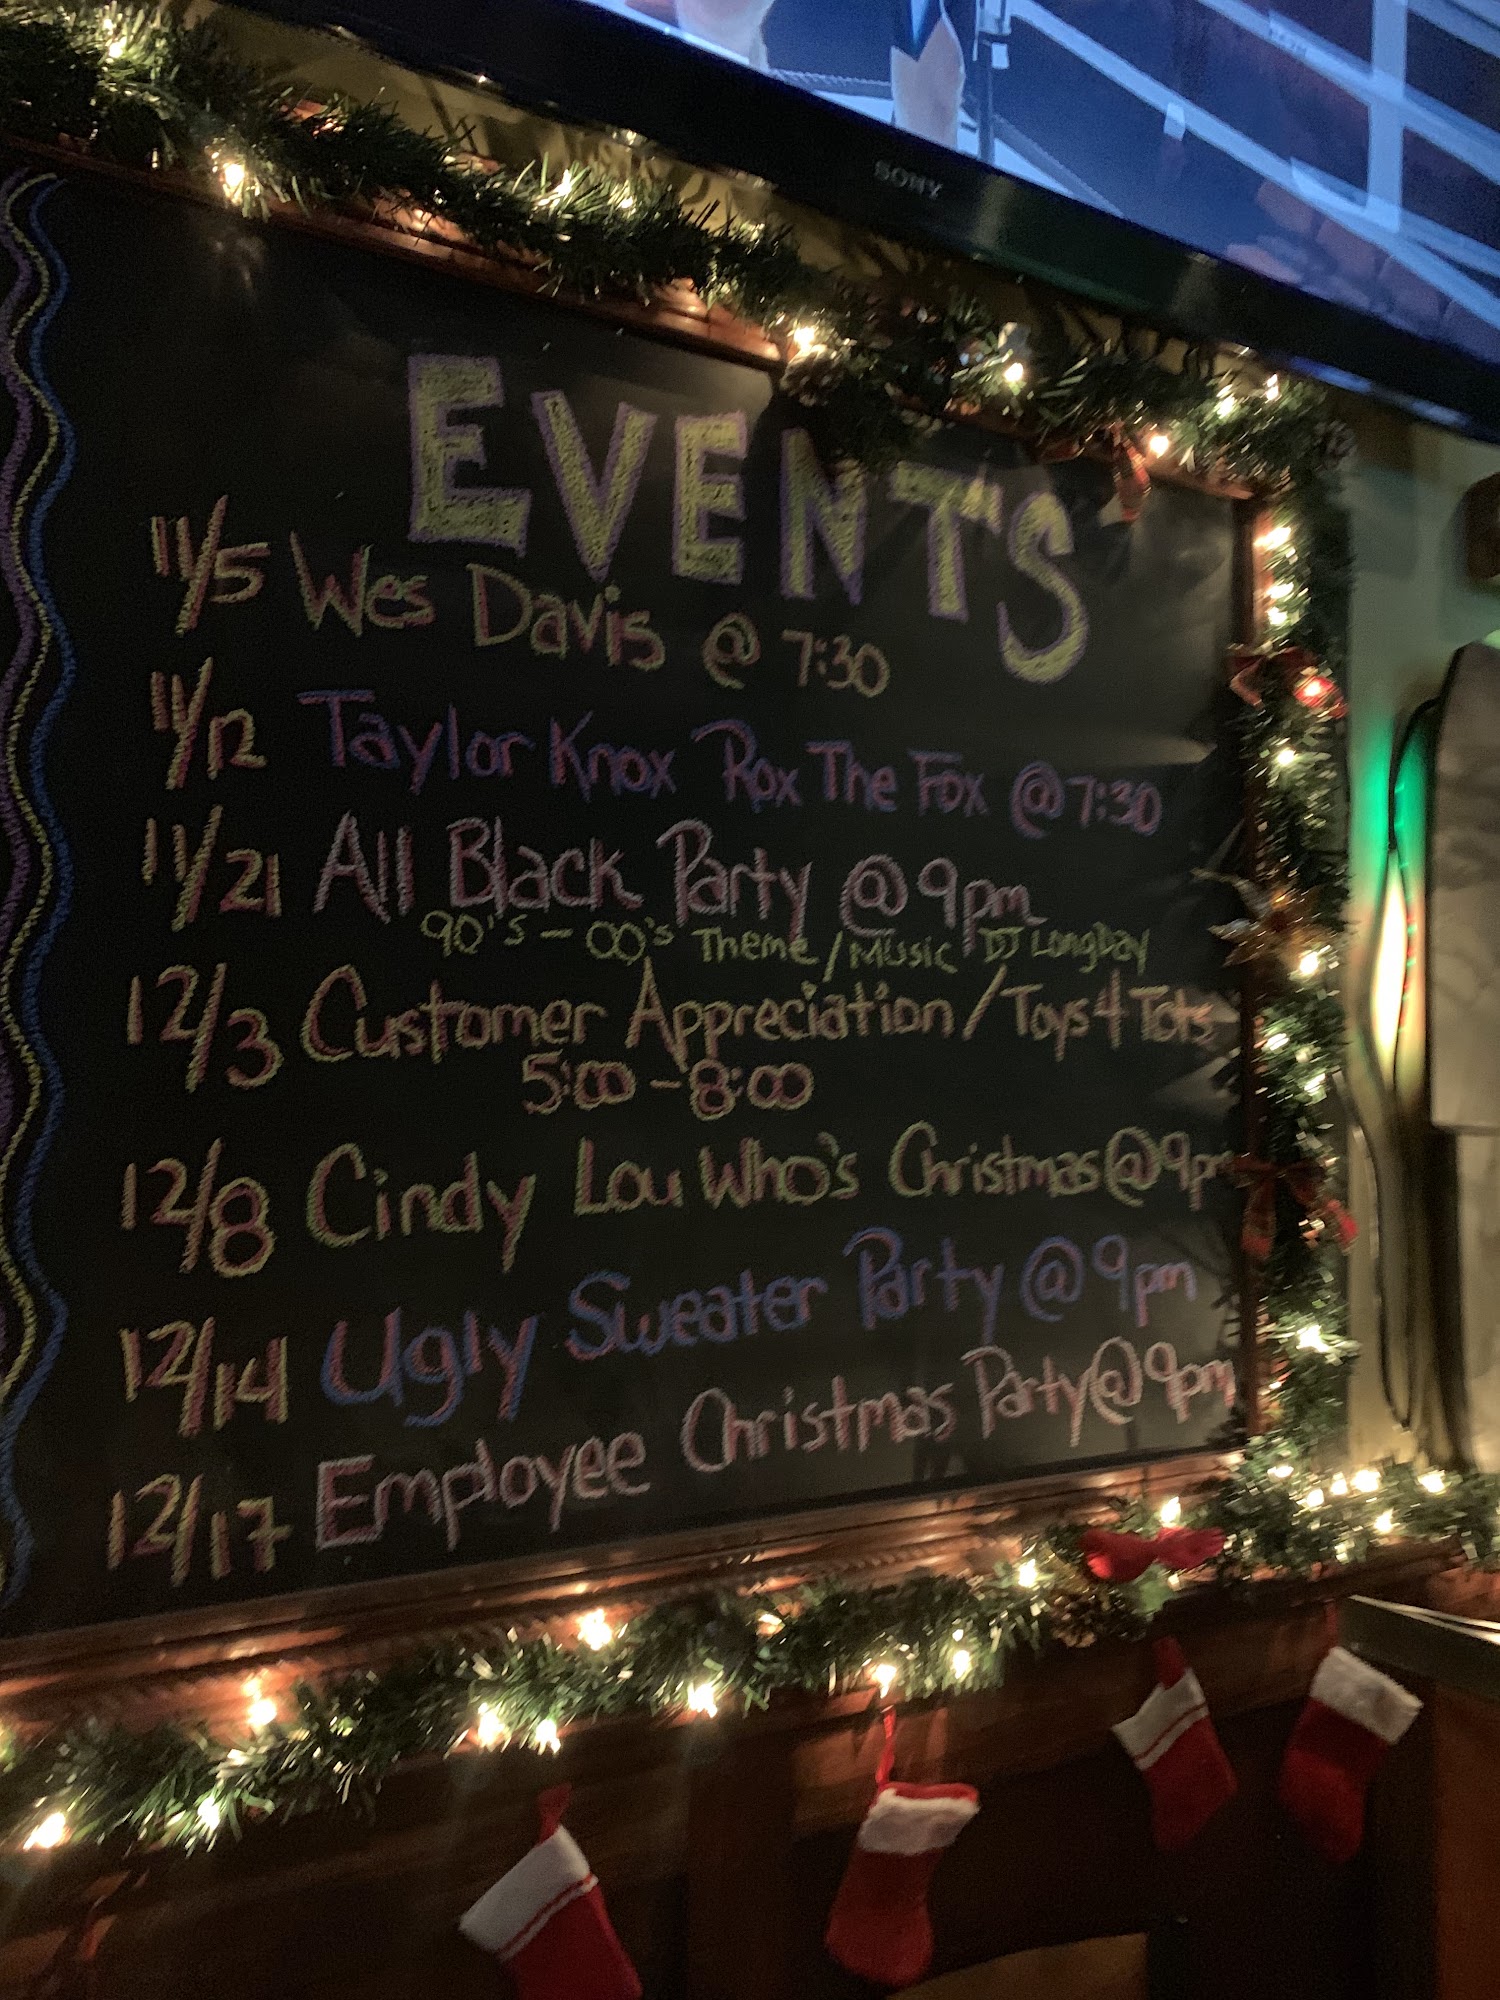 SONY
EVENTS
11/5 Wes Davis @ 7:30
11/12 Taylor Knox Rox The Fox @ 7:30
11/21 All Black Party @ 9pm
90's - 00's Theme / Music DJ LongDay
12/3 Customer Appreciation / Toys 4 Tots
5:00 - 8:00
12/8 Cindy Lou Who's Christmas @ 9pm
12/14 Ugly Sweater Party @ 9pm
12/17 Employee Christmas Party @ 9pm